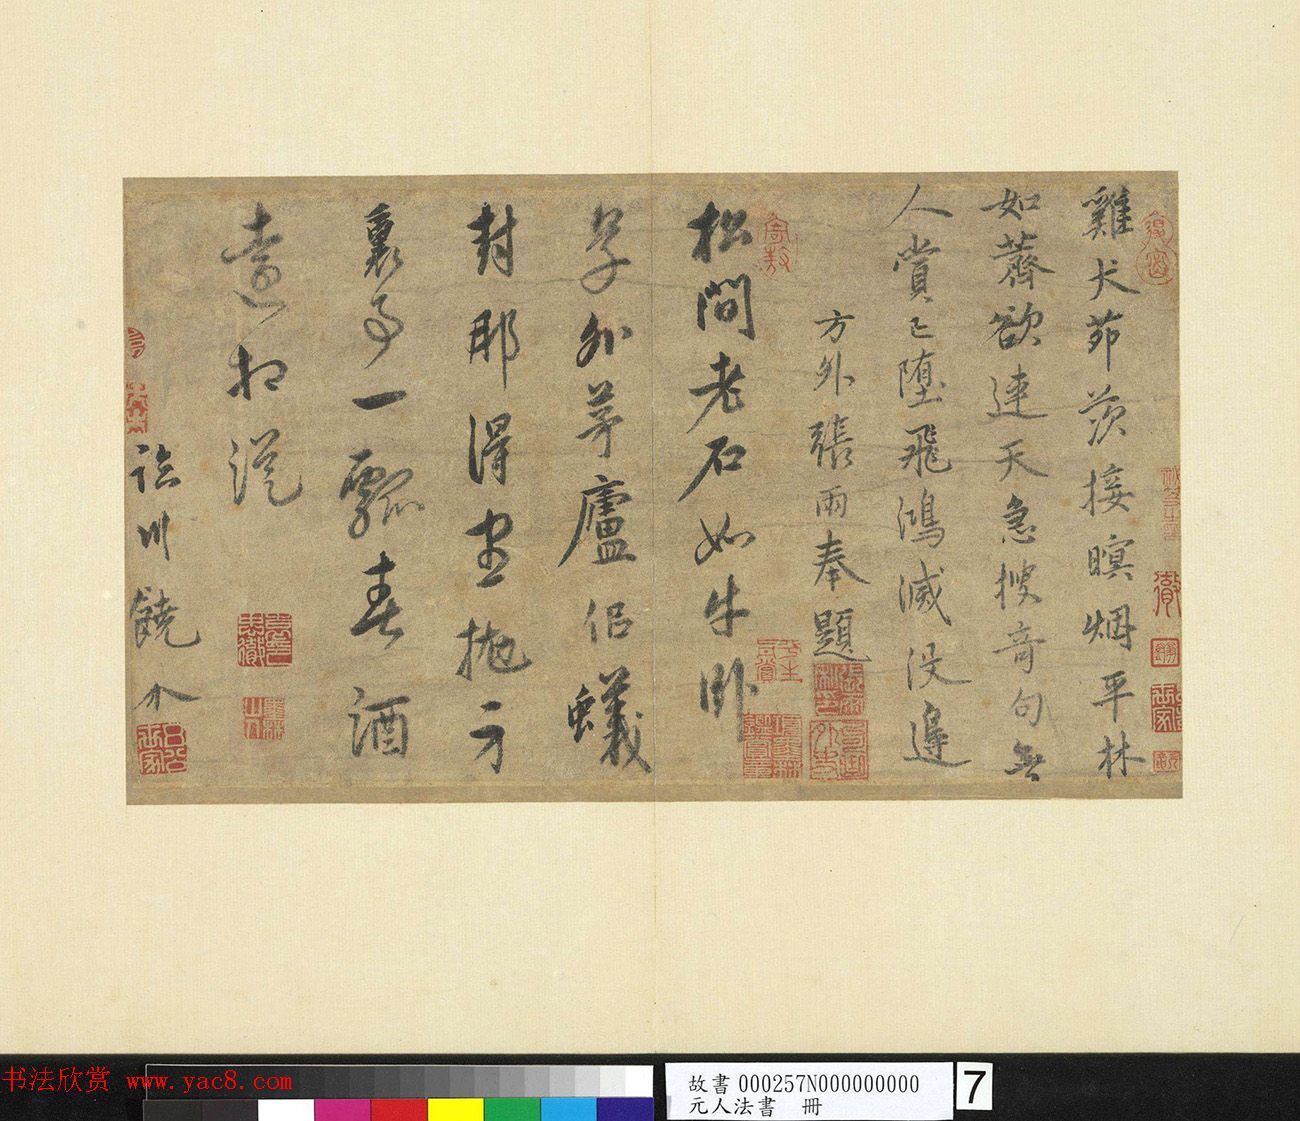 雞犬茆茨接暝烟平林
如薺欲連天急搜奇句無
人賞已墮飛鴻滅沒邊
方外張雨奉題
松間老石如牛卧
草外茅廬侣蟻
封那得盡抛方
裏事一瓢春酒
遠相從
臨川饒介
书法欣赏 www.yac8.com
故書 000257N000000000
元人法書 冊
7